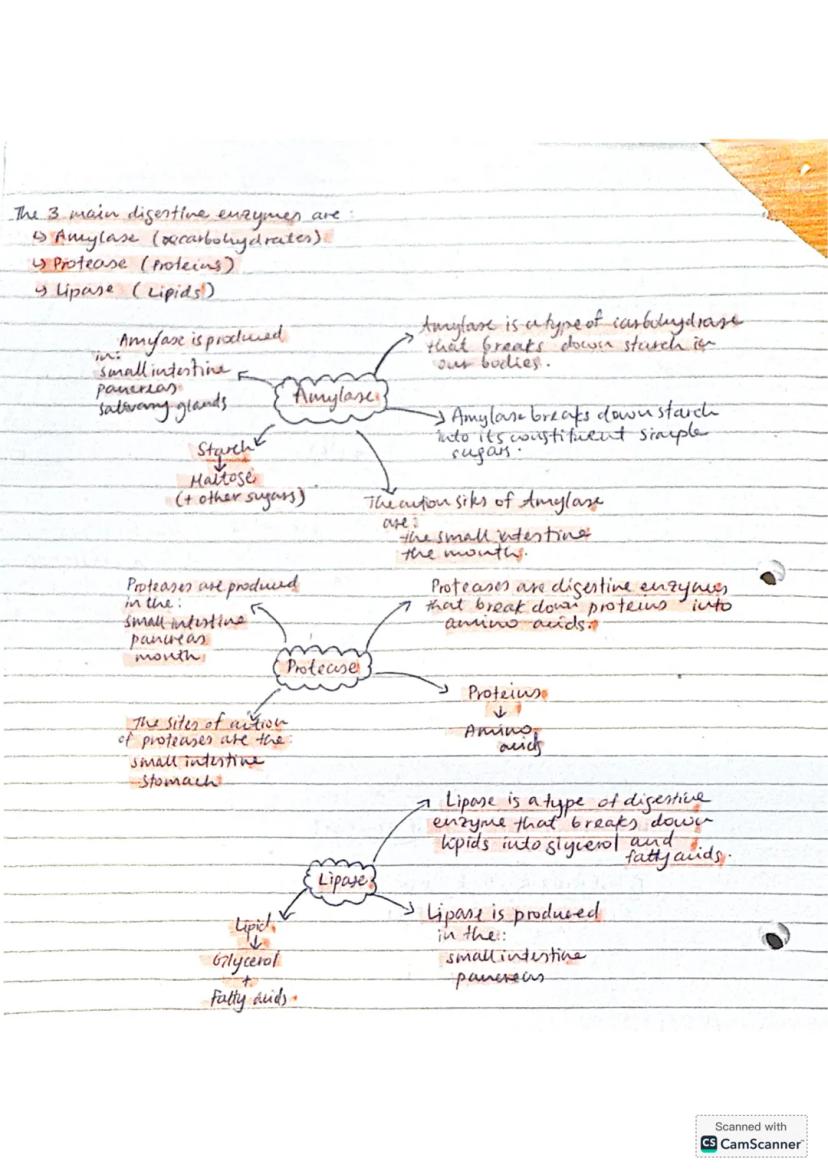 The 3 main digestive enzymes are:
↳ Amylase (carbohydrates)
↳ Protease (Proteins)
↳ Lipase (Lipids)
Amylase is produced
in:
small intestine
pancreas
salivary glands
Amylase is a type of carbohydrase
that breaks down starch in
our bodies.
Amylase
Amylase breaks down starch
into its constituent simple
sugars.
Starch
↓
Maltose
(+ other sugars)
The action sites of Amylase
are:
the small intestine
the mouth.
Proteases are produced
in the:
small intestine
pancreas
mouth
Proteases are digestive enzymes
that break down proteins into
amino acids.
Protease
Proteins
↓
Amino
acids
The sites of action
of proteases are the:
small intestine
stomach
Lipase is a type of digestive
enzyme that breaks down
lipids into glycerol and
fatty acids.
Lipase
Lipid
↓
Glycerol
+
Fatty acids.
Lipase is produced
in the:
small intestine
pancreas
Scanned with
CS CamScanner